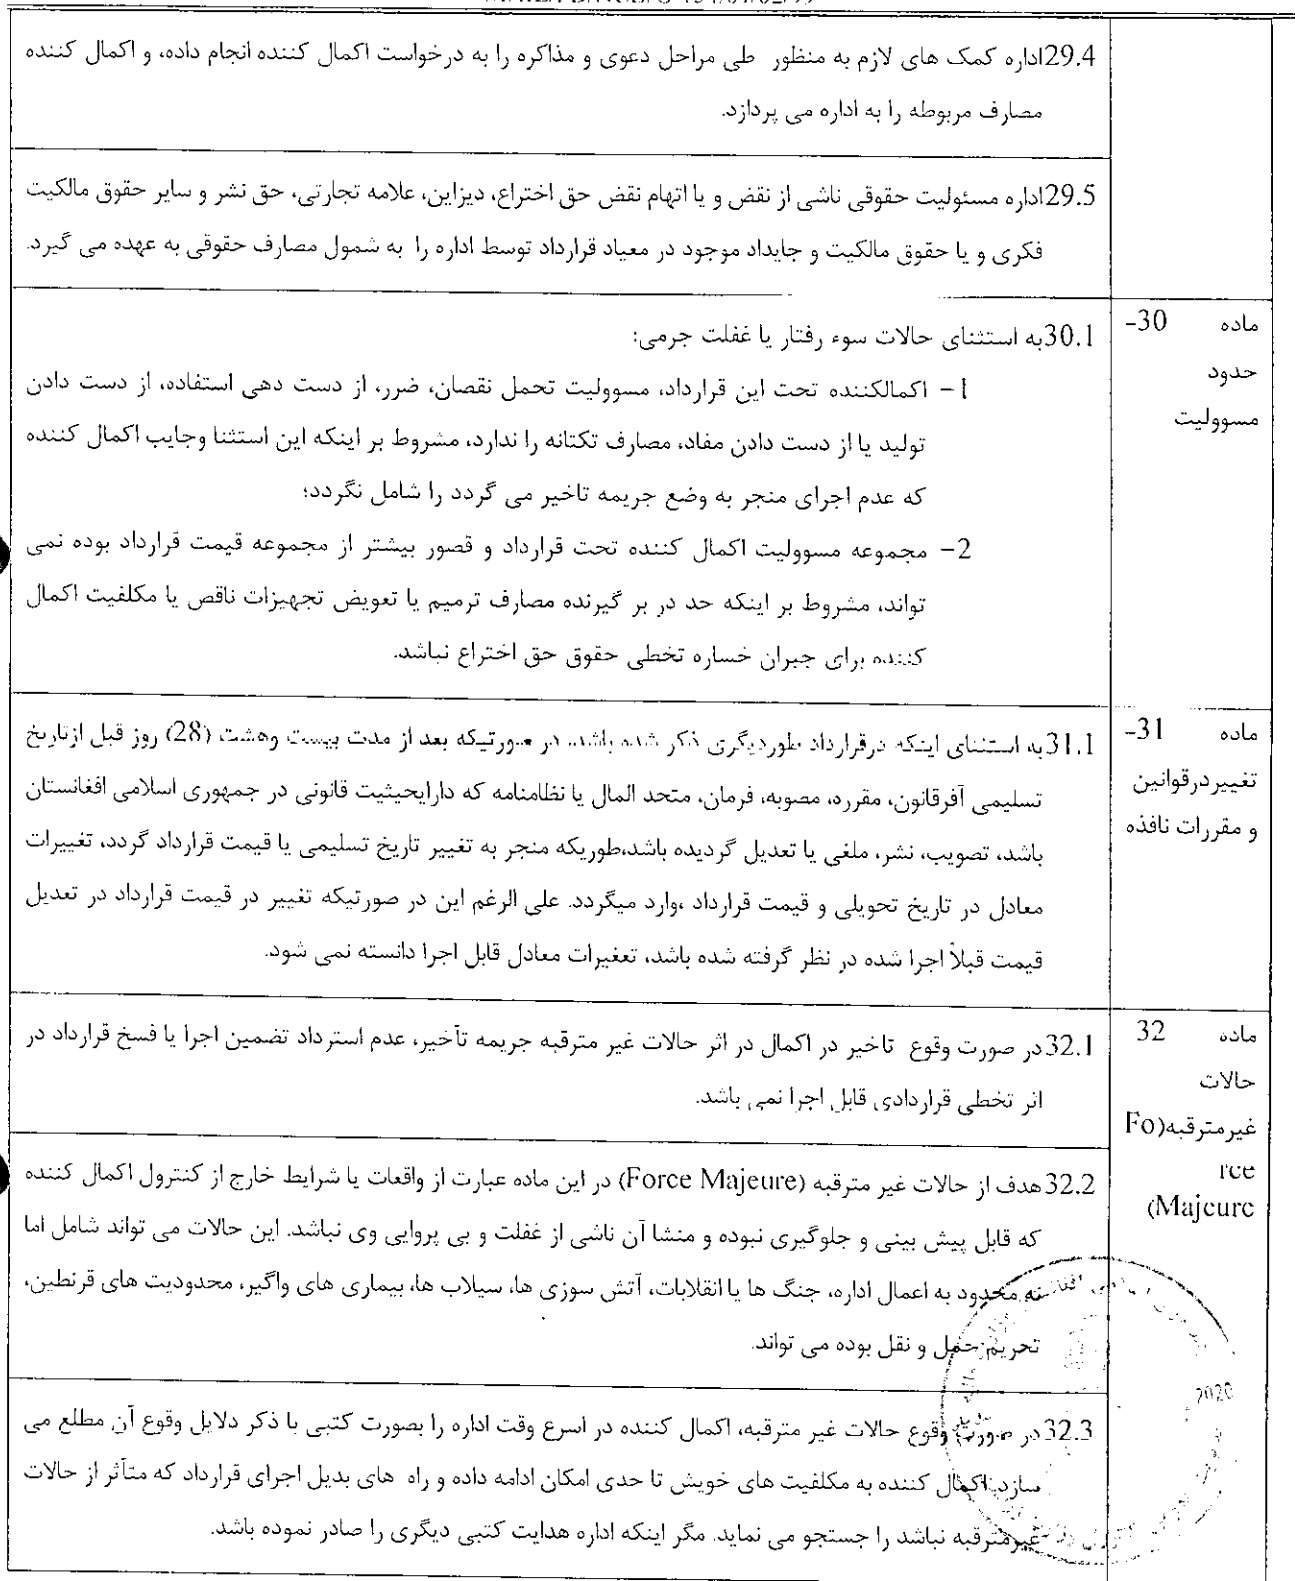 29.4اداره کمک های لازم به منظور طی مراحل دعوی و مذاکره را به درخواست اکمال کننده انجام داده، و اکمال کننده
مصارف مربوطه را به اداره می پردازد.
29.5اداره مسئولیت حقوقی ناشی از نقض و یا اتهام نقض حق اختراع، دیزاین، علامه تجارتی، حق نشر و سایر حقوق مالکیت
فکری و یا حقوق مالکیت و جایداد موجود در معیاد قرارداد توسط اداره را به شمول مصارف حقوقی به عهده می گیرد.
ماده 30-
حدود
مسوولیت
30.1به استثنای حالات سوء رفتار یا غفلت جرمی:
1- اکمالکننده تحت این قرارداد، مسوولیت تحمل نقصان، ضرر، از دست دهی استفاده، از دست دادن
تولید یا از دست دادن مفاد، مصارف تکتانه را ندارد، مشروط بر اینکه این استثنا وجایب اکمال کننده
که عدم اجرای منجر به وضع جریمه تاخیر می گردد را شامل نگردد؛
2- مجموعه مسوولیت اکمال کننده تحت قرارداد و قصور بیشتر از مجموعه قیمت قرارداد بوده نمی
تواند، مشروط بر اینکه حد در بر گیرنده مصارف ترمیم یا تعویض تجهیزات ناقص یا مکلفیت اکمال
کننده برای جبران خساره تخطی حقوق حق اختراع نباشد.
ماده 31-
تغییردرقوانین
و مقررات نافذه
31.1به استثنای اینکه درقرارداد طوردیگری ذکر شده باشد، در صورتیکه بعد از مدت بیست وهشت (28) روز قبل ازتاریخ
تسلیمی آفرقانون، مقرره، مصوبه، فرمان، متحد المال یا نظامنامه که دارایحیثیت قانونی در جمهوری اسلامی افغانستان
باشد، تصویب، نشر، ملغی یا تعدیل گردیده باشد،طوریکه منجر به تغییر تاریخ تسلیمی یا قیمت قرارداد گردد، تغییرات
معادل در تاریخ تحویلی و قیمت قرارداد ،وارد میگردد. علی الرغم این در صورتیکه تغییر در قیمت قرارداد در تعدیل
قیمت قبلاً اجرا شده در نظر گرفته شده باشد، تعغیرات معادل قابل اجرا دانسته نمی شود.
ماده 32
حالات
غیرمترقبه(Fo
rce
Majeure)
32.1در صورت وقوع تاخیر در اکمال در اثر حالات غیر مترقبه جریمه تآخیر، عدم استرداد تضمین اجرا یا فسخ قرارداد در
اثر تخطی قراردادی قابل اجرا نمی باشد.
32.2هدف از حالات غیر مترقبه (Force Majeure) در این ماده عبارت از واقعات یا شرایط خارج از کنترول اکمال کننده
که قابل پیش بینی و جلوگیری نبوده و منشا آن ناشی از غفلت و بی پروایی وی نباشد. این حالات می تواند شامل اما
نه محدود به اعمال اداره، جنگ ها یا انقلابات، آتش سوزی ها، سیلاب ها، بیماری های واگیر، محدودیت های قرنطین،
تحریم حمل و نقل بوده می تواند.
2020
32.3در صورت وقوع حالات غیر مترقبه، اکمال کننده در اسرع وقت اداره را بصورت کتبی با ذکر دلایل وقوع آن مطلع می
سازد. اکمال کننده به مکلفیت های خویش تا حدی امکان ادامه داده و راه های بدیل اجرای قرارداد که متآثر از حالات
غیرمترقبه نباشد را جستجو می نماید. مگر اینکه اداره هدایت کتبی دیگری را صادر نموده باشد.